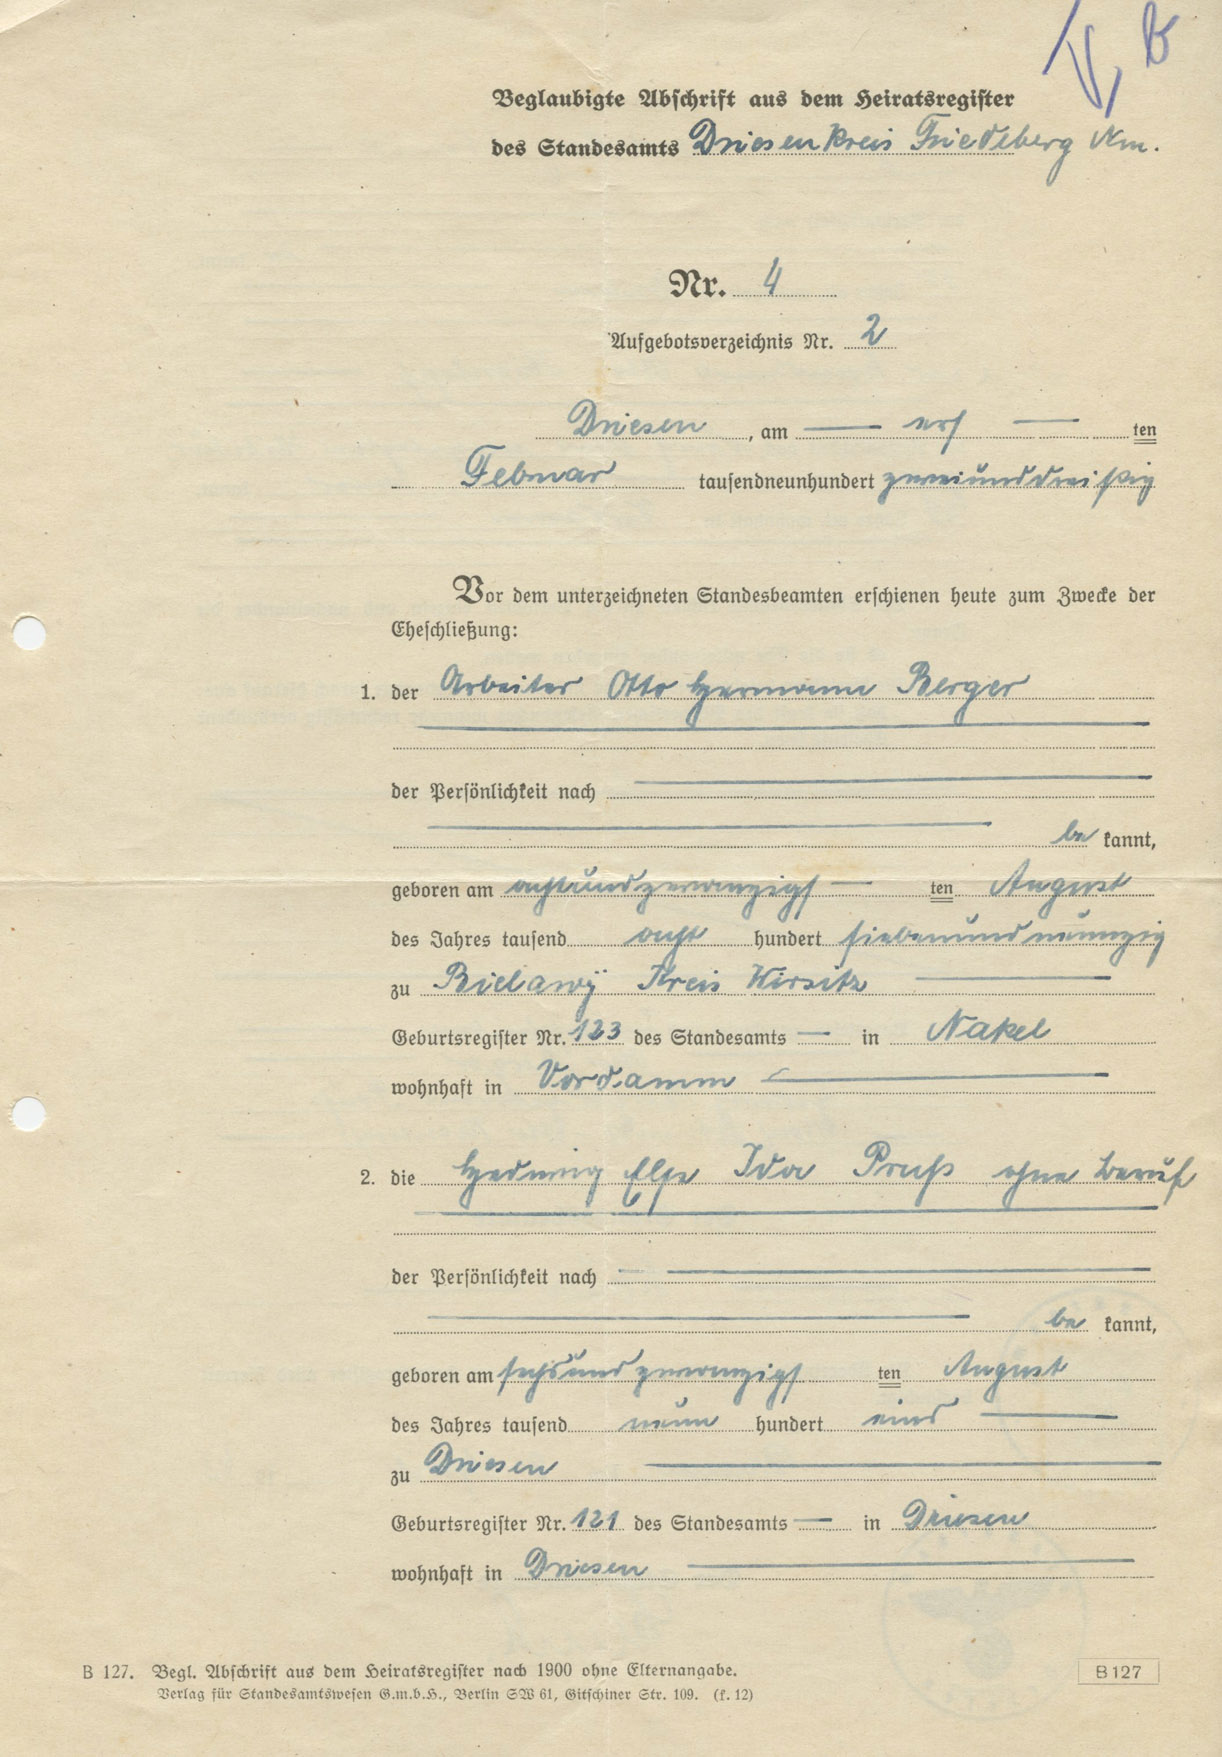 V, B
Beglaubigte Abschrift aus dem Heiratsregister
des Standesamts Driesen Kreis Friedeberg Nm.
Nr. 4
Aufgebotsverzeichnis Nr. 2
Driesen, am — ers — ten
Februar tausendneunhundert zweiunddreißig
Vor dem unterzeichneten Standesbeamten erschienen heute zum Zwecke der
Eheschließung:
1. der Arbeiter Otto Hermann Berger
der Persönlichkeit nach —
— be kannt,
geboren am achtundzwanzigs — ten August
des Jahres tausend acht hundert siebenundneunzig
zu Bielawy Kreis Wirsitz —
Geburtsregister Nr. 123 des Standesamts — in Nakel
wohnhaft in Vordamm —
2. die Hedwig Else Ida Pruß ohne Beruf
der Persönlichkeit nach —
— be kannt,
geboren am sechsundzwanzigs ten August
des Jahres tausend neun hundert eins —
zu Driesen —
Geburtsregister Nr. 121 des Standesamts — in Driesen
wohnhaft in Driesen —
B 127. Begl. Abschrift aus dem Heiratsregister nach 1900 ohne Elternangabe.
Verlag für Standesamtswesen G.m.b.H., Berlin SW 61, Gitschiner Str. 109. (k. 12)
B 127